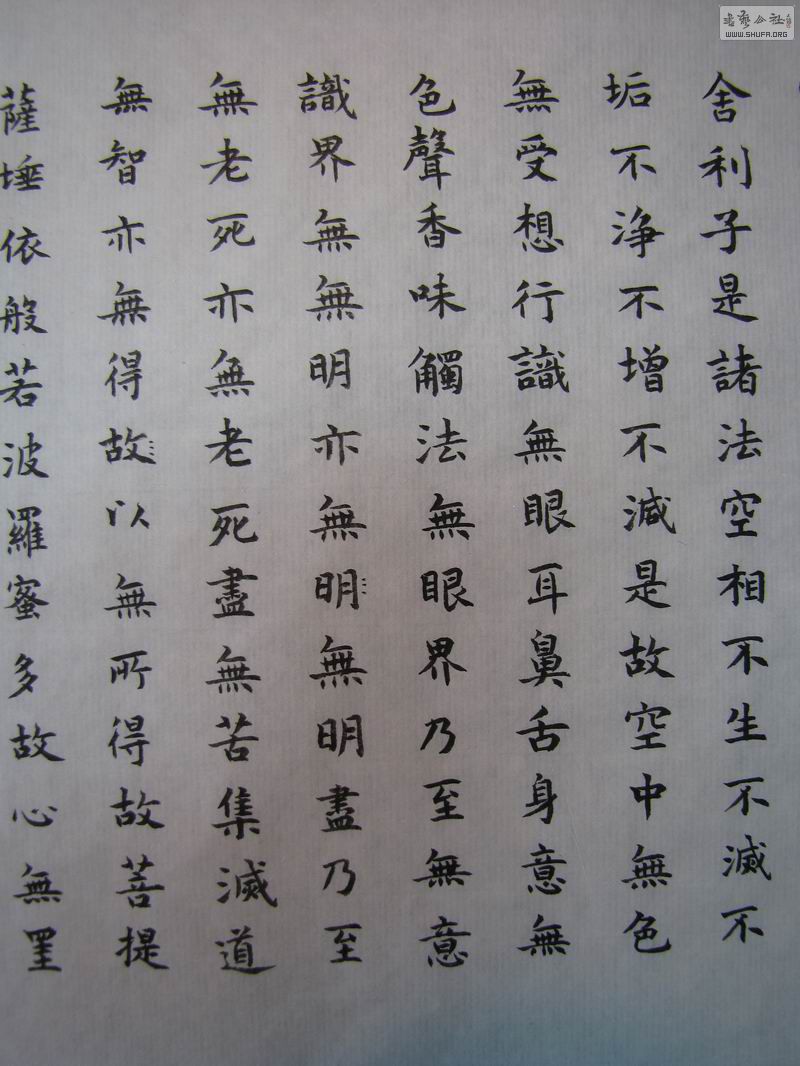 舍利子是諸法空相不生不滅不
垢不淨不增不減是故空中無色
無受想行識無眼耳鼻舌身意無
色聲香味觸法無眼界乃至無意
識界無無明亦無明無明盡乃至
無老死亦無老死盡無苦集滅道
無智亦無得故以無所得故菩提
薩埵依般若波羅蜜多故心無罣
書藝公社
WWW.SHUFA.ORG